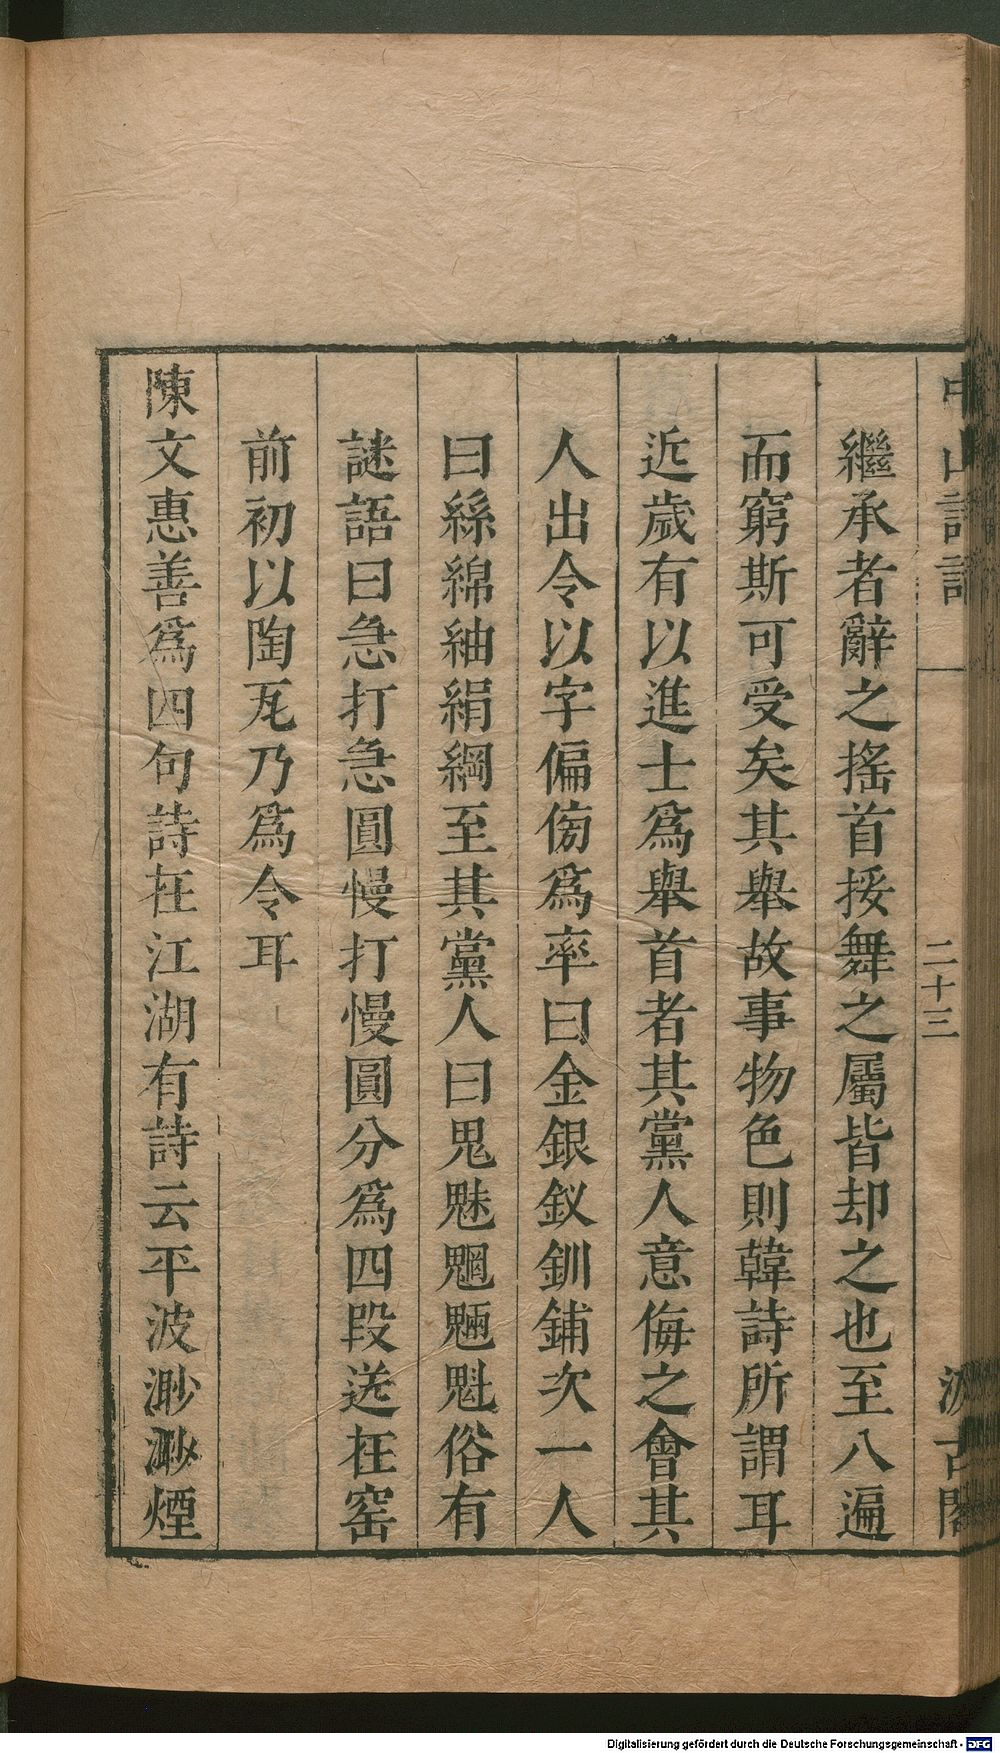 中山詩話
二十三
汲古閣
繼承者辭之搖首挼舞之屬皆却之也至八遍
而窮斯可受矣其舉故事物色則韓詩所謂耳
近歲有以進士爲舉首者其黨人意侮之會其
人出令以字偏傍爲率曰金銀釵釧鋪次一人
曰絲綿紬絹綱至其黨人曰鬼魅魍魎魁俗有
謎語曰急打急圓慢打慢圓分爲四段送在窑
前初以陶瓦乃爲令耳
陳文惠善爲四句詩在江湖有詩云平波渺渺煙
Digitalisierung gefördert durch die Deutsche Forschungsgemeinschaft - DFG